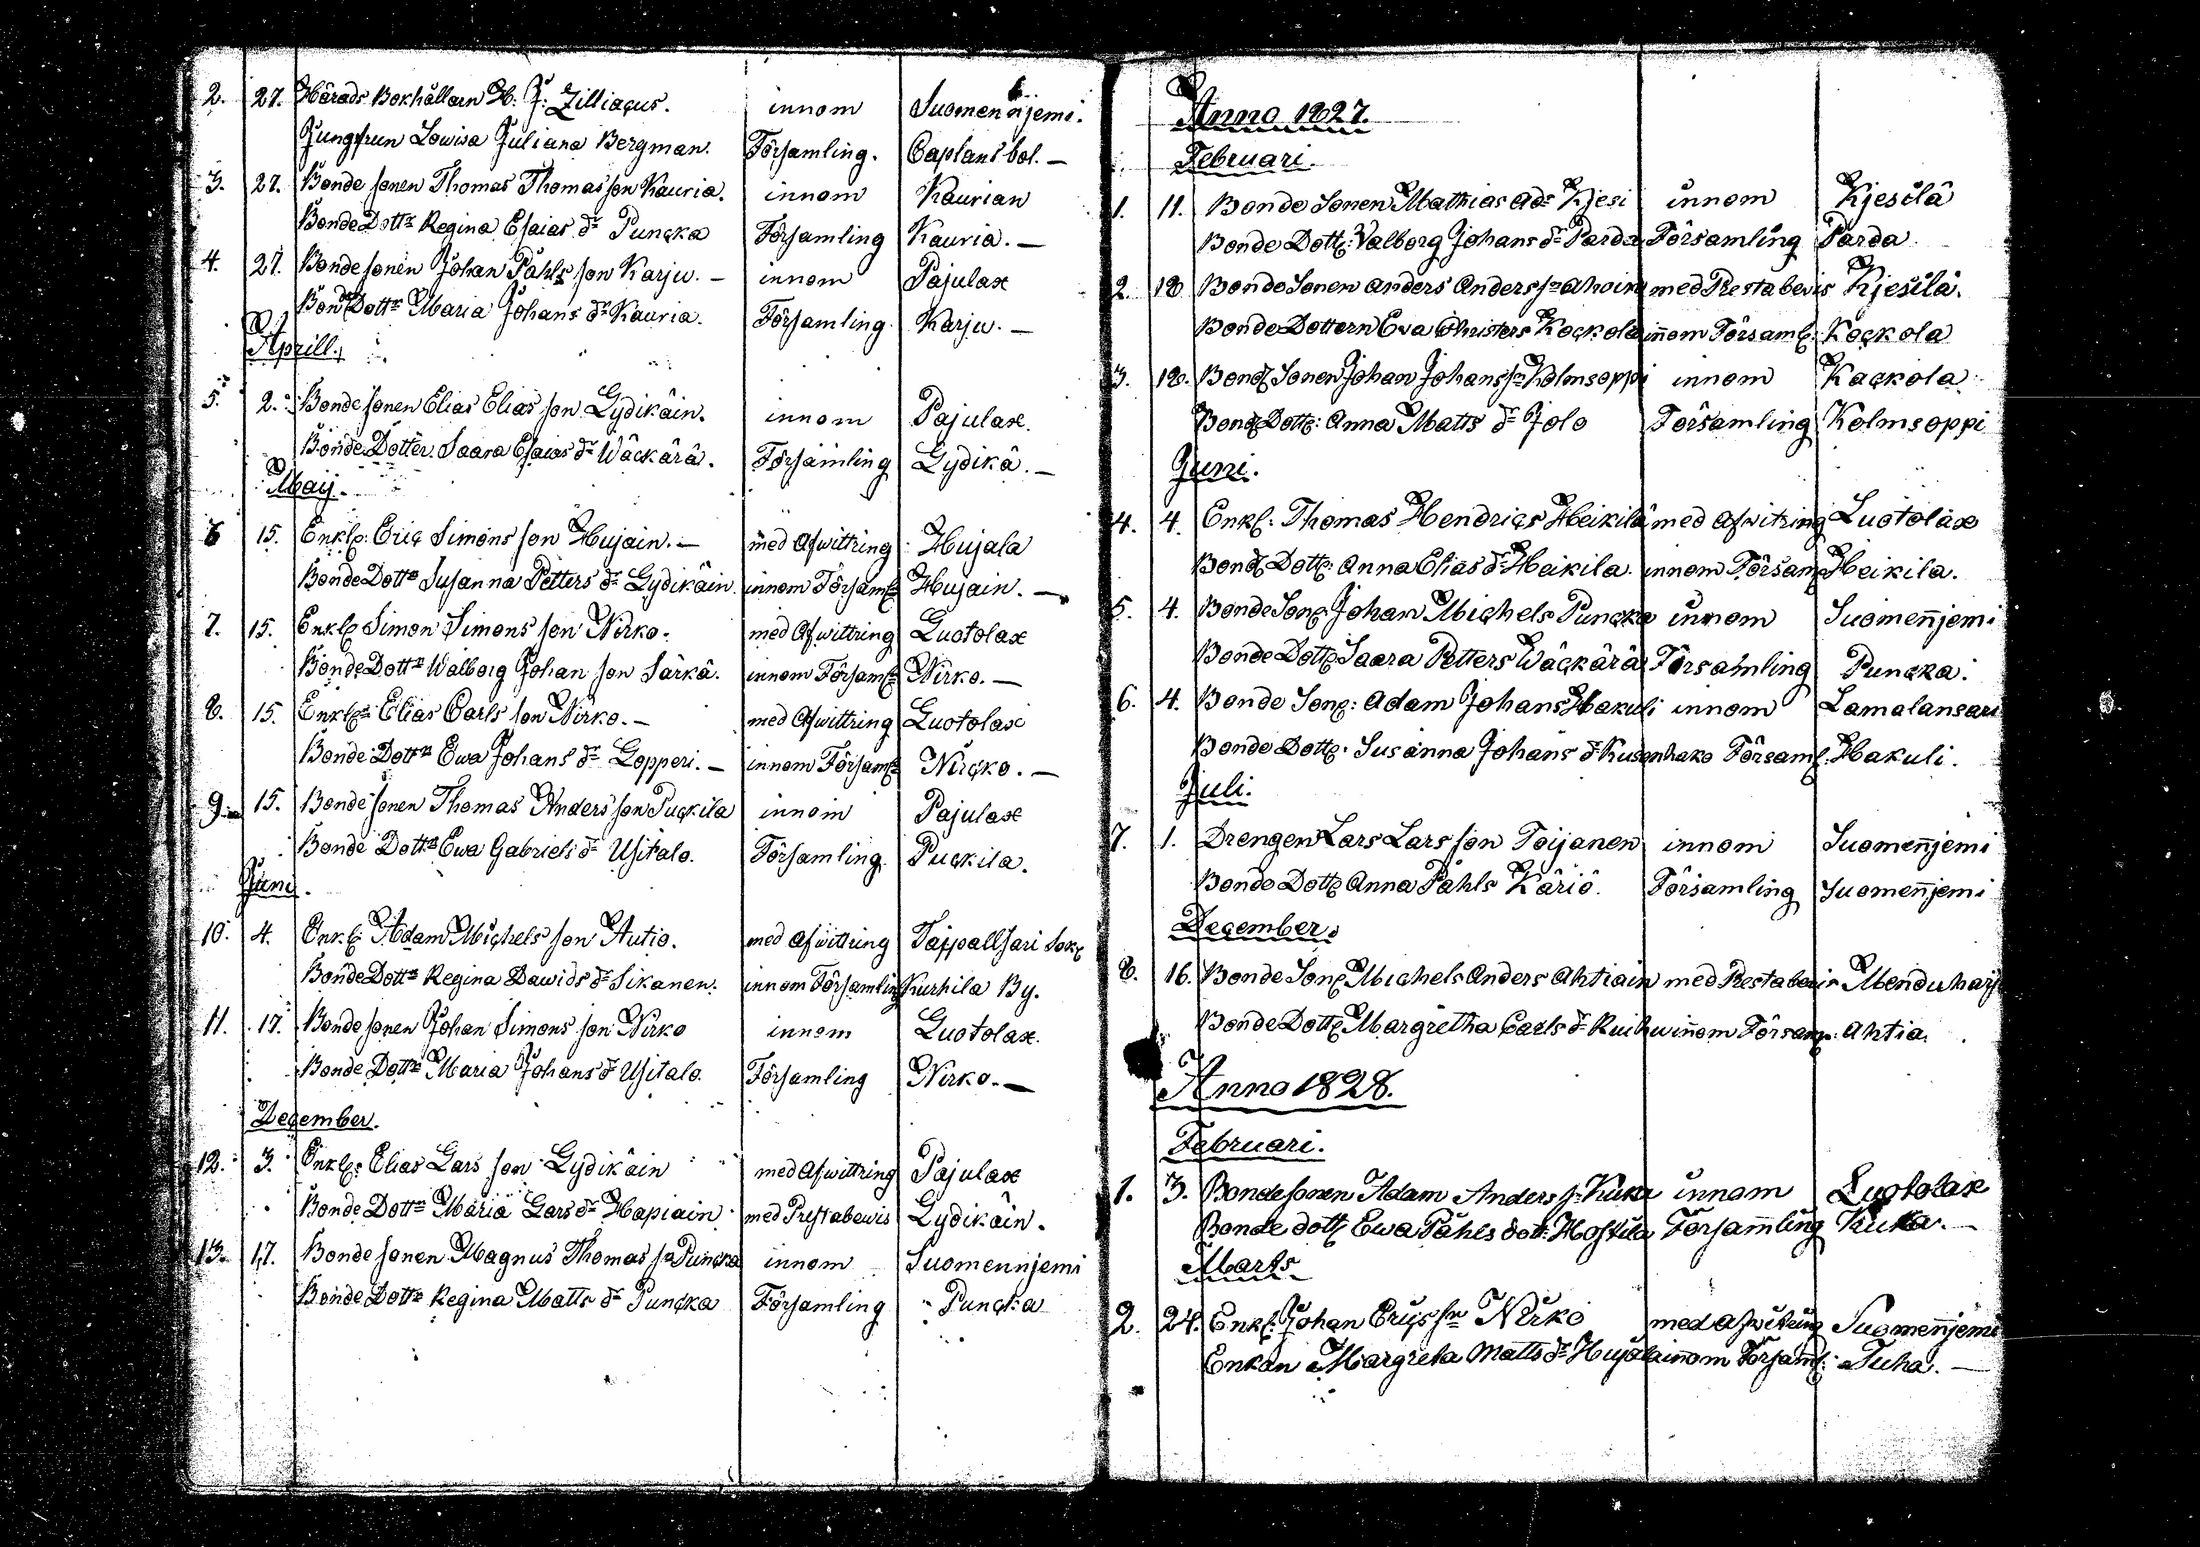 2. 27. Härads Bokhållarn H: J: Zilliacus. innom Suomennjemi.
Jungfrun Lowisa Juliana Bergman. Församling. Caplans bol. —
3. 27. Bonde sonen Thomas Thomas son Kauria. innom Kaurian
Bonde Dottr Regina Esaias dr Puncka Församling Kauria. —
4. 27. Bonde sonen Johan Påhls son Karju. — innom Pajulax
Bonde Dottr Maria Johans dr Kauria. Församling Karju. —
Aprill.
5. 2. Bonde sonen Elias Elias son Lydikäin. innom Pajulax.
Bonde Dotter Saara Esaias dr Wäckärä. Församling Lydikä. —
Maij.
6 15. Enkl: Eric Simons son Hujain. — med Afwittring Hujala
Bonde Dottr Susanna Petters dr Lydikäin. innom Församl: Hujain. —
7. 15. Enkl: Simon Simons son Nirko. med Afwittring Luotolax
Bonde Dottr Walborg Johan son Särkä. innom Församl: Nirko. —
8. 15. Enkl: Elias Carls son Nirko. — med Afwittring Luotolax
Bonde Dottr Ewa Johans dr Lopperi. — innom Församl: Nircko. —
9. 15. Bonde sonen Thomas Anders son Puckila innom Pajulax
Bonde Dottr Ewa Gabriels dr Usitalo. Församling. Puckila.
Juni.
10. 4. Enkl: Adam Michels son Autio. med Afwittring Täppallsari Sokn
Bonde Dottr Regina Dawids dr Sikanen. innom Församling Kurhila By.
11. 17. Bonde sonen Johan Simons son Nirko innom Luotolax.
Bonde Dottr Maria Johans dr Usitalo. Församling Nirko. —
December.
12. 3. Enkl: Elias Lars son Lydikäin med Afwittring Pajulax
Bonde Dottr Maria Lars dr Hapiain med Prestabewis Lydikäin.
13. 17. Bonde sonen Magnus Thomas sn Puncka innom Suomennjemi
Bonde Dottr Regina Matts dr Puncka Församling Puncka
Anno 1827.
Februari.
1. 11. Bonde Sonen Mathias Ads Kjesi innom Kjesilä
Bonde Dott: Valborg Johans dr Parda Församling Parda
2. 18 Bonde Sonen Anders Anders sn Ahoin med Prestabevis Kjesilä.
Bonde Dottern Eva Christers Kockola innom Församl: Kockola
3. 18. Bond Sonen Johan Johans sn Kolmsoppi innom Kackola
Bond Dott: Anna Matts dr Jolo Församling Kolmsoppi
Juni.
4. 4. Enkl: Thomas Hendrics Heikilä med Afwitring Luotolax
Bond Dott: Anna Elias dr Heikila innom Församl Heikila.
5. 4. Bonde Son: Johan Michels Puncka innom Suomennjemi
Bonde Dott: Saara Petters Wäckärä Församling Puncka.
6. 4. Bonde Son: Adam Johans Hakuli innom Lamalansari
Bonde Dott: Susanna Johans dr Kusenhako Församl: Hakuli.
Juli.
7. 1. Drengen Lars Lars son Toijanen innom Suomennjemi
Bonde Dott: Anna Påhls Käriö. Församling Suomennjemi
December.
8. 16. Bonde Son: Michels Anders Ahtiain med Prestabevis Menduharj
Bonde Dott: Margretha Carls dr Ruihu innom Församl: Ahtia.
Anno 1828.
Februari.
1. 3. Bondesonen Adam Anders sn Kuka innom Luotolax
Bonde dott Ewa Påhls dott: Hostila Församling Kuka. —
Marts
2. 24. Enkl: Johan Erics sn Nirko med Afwitring Suomennjemi
Enkan Margreta Matts dr Hujala innom Församl: Tuha. —